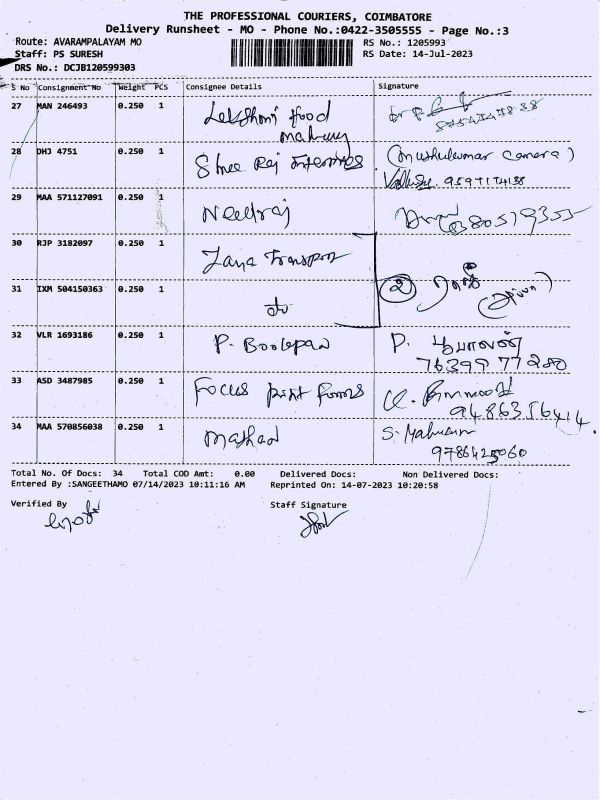 THE PROFESSIONAL COURIERS, COIMBATORE
Delivery Runsheet - MO - Phone No.:0422-3505555 - Page No.:3
Route: AVARAMPALAYAM MO RS No.: 1205993
Staff: PS SURESH RS Date: 14-Jul-2023
DRS No.: DCJB120599303
S No Consignment No Weight PCS Consignee Details Signature
27 MAN 246493 0.250 1 Lakshmi food
28 DHJ 4751 0.250 1 Shree Raj Enterprises (Muthukumar camera)
9597174138
29 MAA 571127091 0.250 1 Neelraj
30 RJP 3182097 0.250 1 Jaya Transport
31 IXM 504150363 0.250 1 do
32 VLR 1693186 0.250 1 P. Boolepan P. பூபாலன்
76399 77280
33 ASD 3487985 0.250 1 Focus print forms
9486356414.
34 MAA 570856038 0.250 1 Mathan S.
9786425060
Total No. Of Docs: 34 Total COD Amt: 0.00 Delivered Docs: Non Delivered Docs:
Entered By :SANGEETHAMO 07/14/2023 10:11:16 AM Reprinted On: 14-07-2023 10:20:58
Verified By Staff Signature